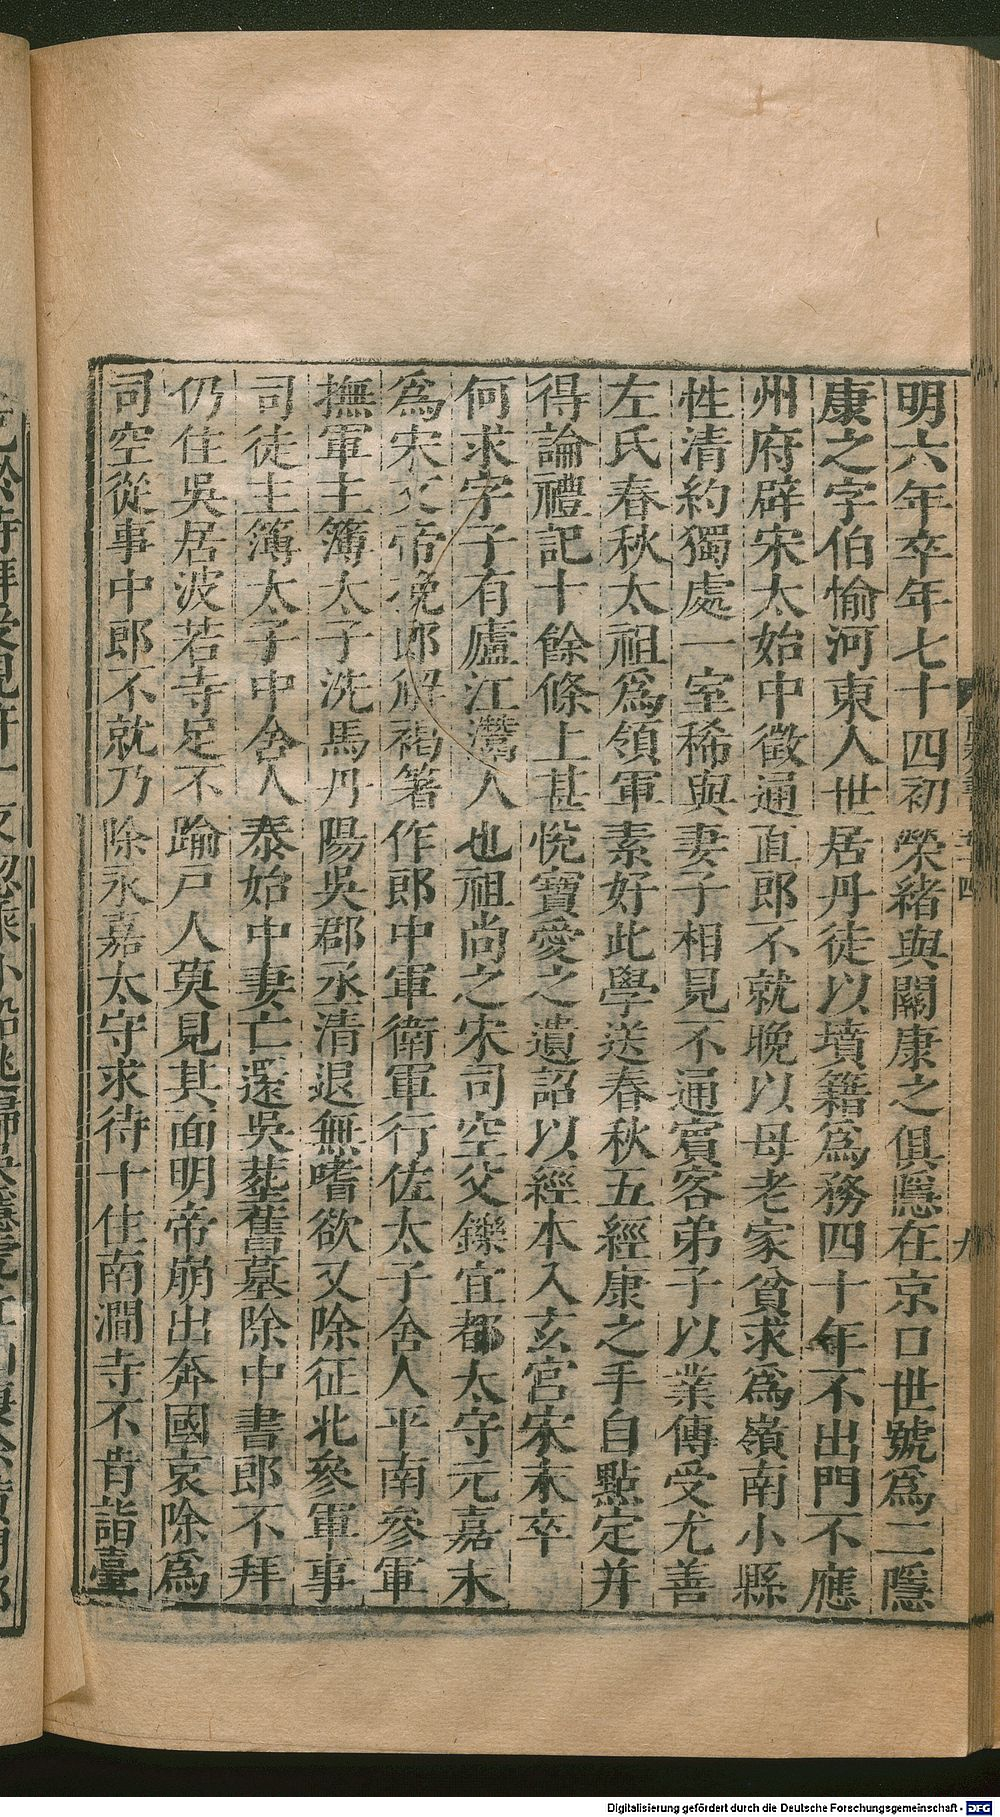 明六年卒年七十四初榮緒與關康之俱隱在京口世號爲二隱
康之字伯愉河東人世居丹徒以墳籍爲務四十年不出門不應
州府辟宋太始中徵通直郎不就晚以母老家貧求爲嶺南小縣
性清約獨處一室稀與妻子相見不通賓客弟子以業傳受尤善
左氏春秋太祖爲領軍素好此學送春秋五經康之手自點定幷
得論禮記十餘條上甚悅寶愛之遺詔以經本入玄宮宋末卒
何求字子有廬江灊人也祖尚之宋司空父鑠宜都太守元嘉末
爲宋文帝挽郎解褐著作郎中軍衛軍行佐太子舍人平南參軍
撫軍主簿太子洗馬丹陽吳郡丞清退無嗜欲又除征北參軍事
司徒主簿太子中舍人泰始中妻亡還吳葬舊墓除中書郎不拜
仍住吳居波若寺足不踰戶人莫見其面明帝崩出奔國哀除爲
司空從事中郎不就乃除永嘉太守求待十住南澗寺不肯詣臺
九
Digitalisierung gefördert durch die Deutsche Forschungsgemeinschaft - DFG